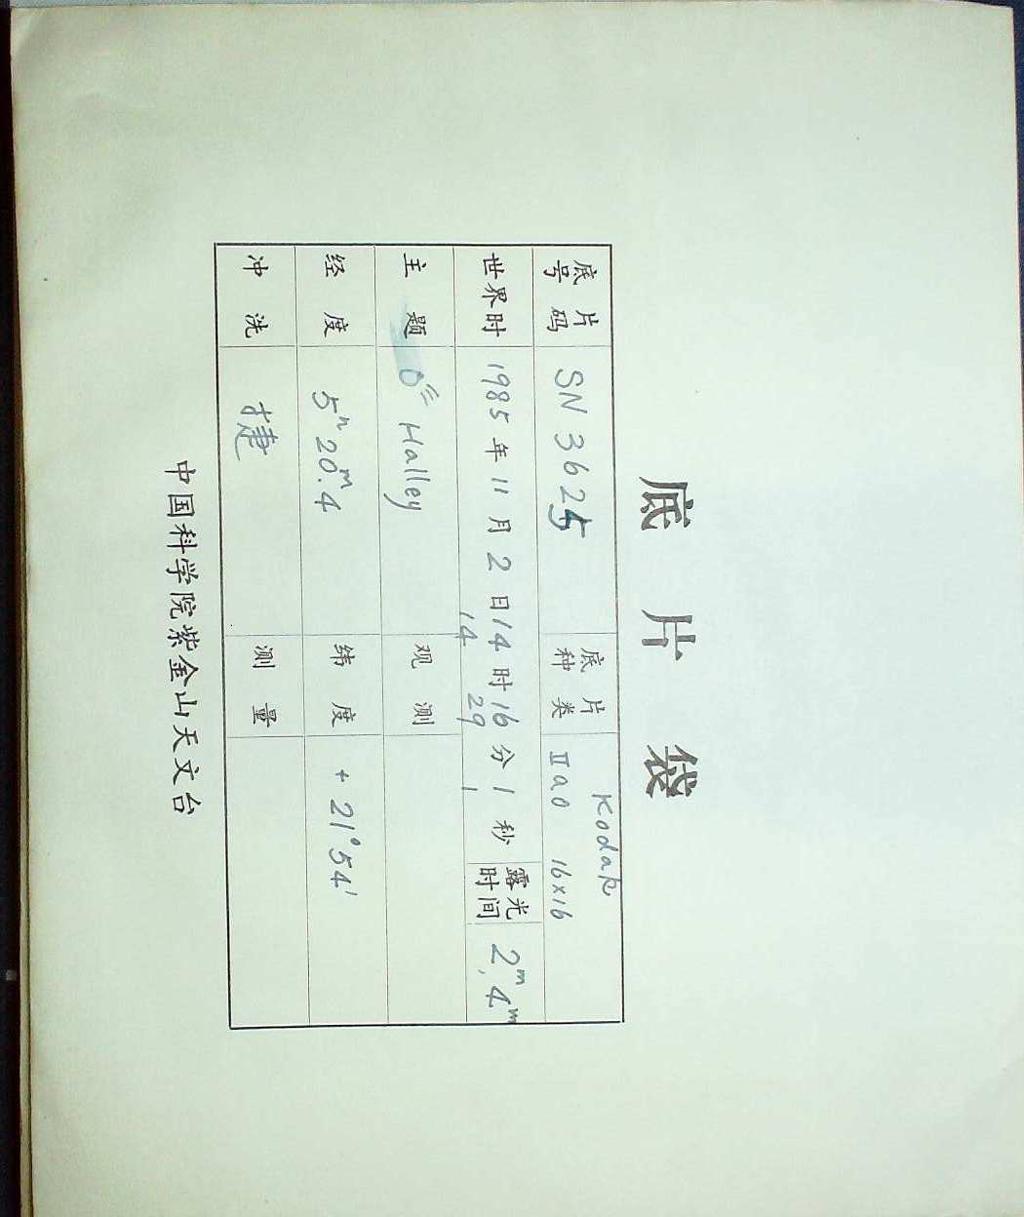 底片袋
底片号码 SN 3625 底片种类 Kodak IIaO 16×16
世界时 1985年11月2日14时16分1秒 露光时间 2ᵐ, 4ᵐ
14 29 1
主题 Halley 观测
经度 5ʰ20ᵐ.4 纬度 +21°54′
冲洗 捷 测量
中国科学院紫金山天文台